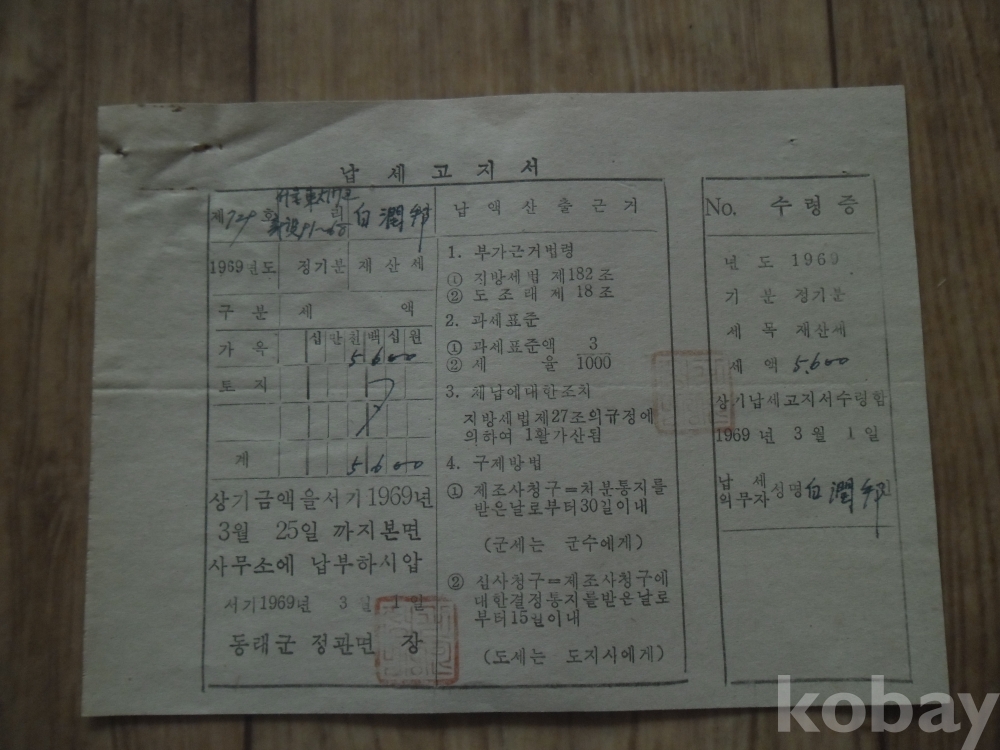 납세고지서
제724호 리 白潤邦
1969년도 정기분 재산세
구분 세 액
십만천백십원
가옥 5600
토지
계 5600
상기금액을서기1969년
3월 25일 까지본면
사무소에 납부하시압
서기1969년 3월 1일
동래군 정관면 장
납액산출근거
1. 부가근거법령
① 지방세법 제182조
② 도조래 제 18조
2. 과세표준
① 과세표준액 3
② 세 율 1000
3. 체납에대한조치
지방세법제27조의규정에
의하여 1활가산됨
4. 구제방법
① 제조사청구=처분통지를
받은날로부터30일이내
(군세는 군수에게)
② 심사청구=제조사청구에
대한결정통지를받은날로
부터15일이내
(도세는 도지시에게)
No. 수령증
년도 1969
기분 정기분
세목 재산세
세액 5,600
상기납세고지서수령함
1969년 3월 1일
납세
의무자 성명 白潤邦 인
kobay